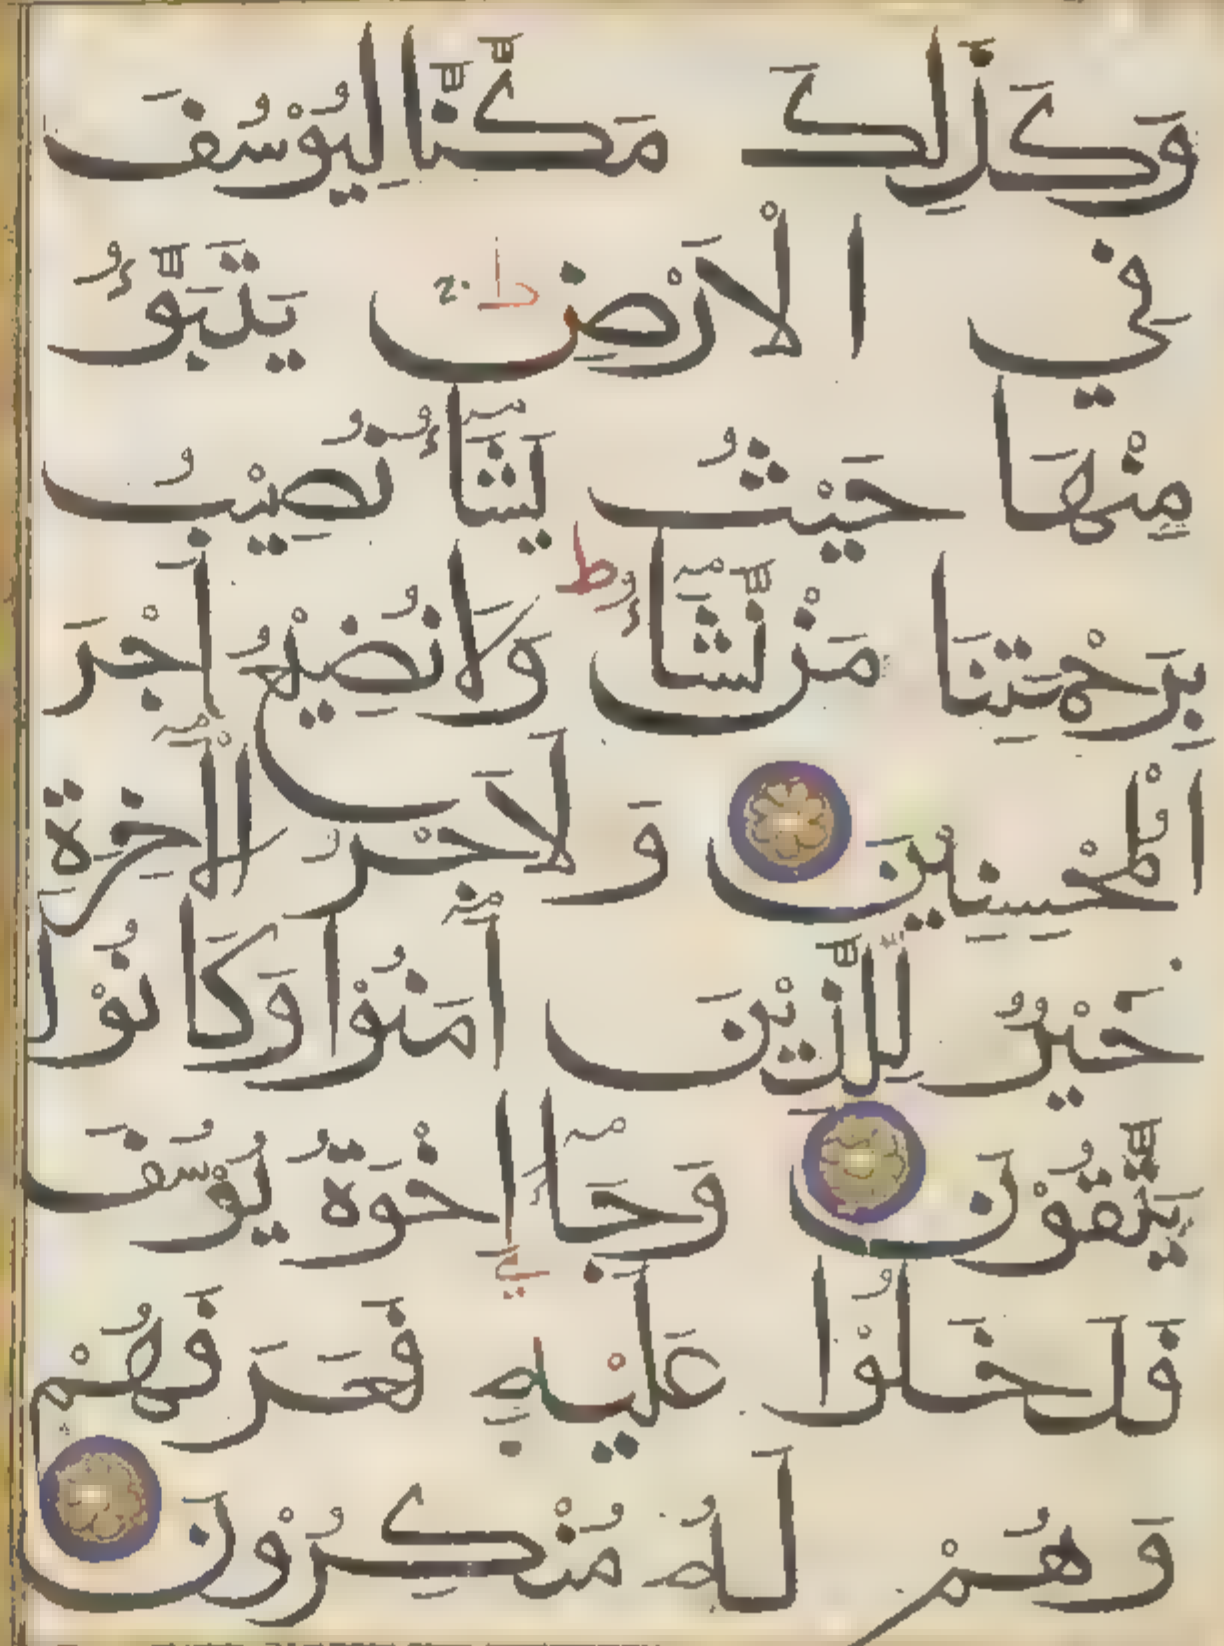 وَكَذَلِكَ مَكَّنَّا لِيُوْسُفَ
فِي الْاَرْضِ ط يَتَبَوَّءُ
مِنْهَا حَيْثُ يَشَآءُ نُصِيْبُ
بِرَحْمَتِنَا مَنْ نَّشَآءُ ط وَلَا نُضِيْعُ اَجْرَ
الْمُحْسِنِيْنَ وَلَاَجْرُ الْاٰخِرَةِ
خَيْرٌ لِلَّذِيْنَ اٰمَنُوْا وَكَانُوْا
يَتَّقُوْنَ وَجَآءَ اِخْوَةُ يُوْسُفَ
فَدَخَلُوْا عَلَيْهِ فَعَرَفَهُمْ
وَهُمْ لَهُ مُنْكِرُوْنَ